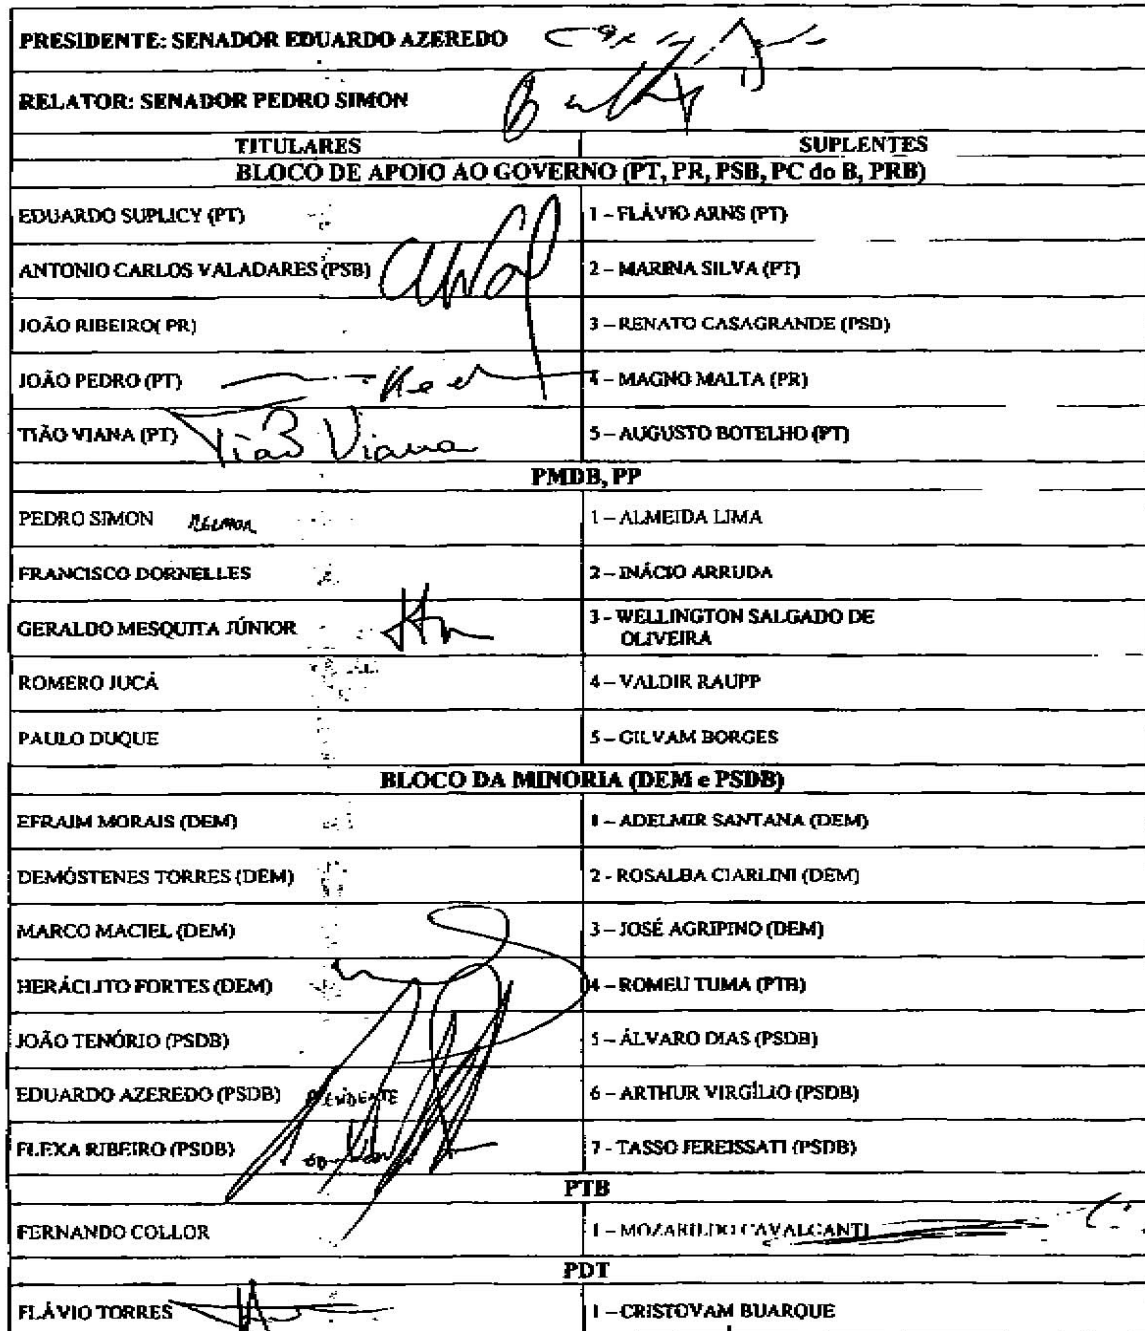 PRESIDENTE: SENADOR EDUARDO AZEREDO
RELATOR: SENADOR PEDRO SIMON
TITULARES SUPLENTES
BLOCO DE APOIO AO GOVERNO (PT, PR, PSB, PC do B, PRB)
EDUARDO SUPLICY (PT) 1 – FLÁVIO ARNS (PT)
ANTONIO CARLOS VALADARES (PSB) 2 – MARINA SILVA (PT)
JOÃO RIBEIRO( PR) 3 – RENATO CASAGRANDE (PSD)
JOÃO PEDRO (PT) 4 – MAGNO MALTA (PR)
TIÃO VIANA (PT) Tião Viana 5 – AUGUSTO BOTELHO (PT)
PMDB, PP
PEDRO SIMON RELATOR 1 – ALMEIDA LIMA
FRANCISCO DORNELLES 2 – INÁCIO ARRUDA
GERALDO MESQUITA JÚNIOR 3 - WELLINGTON SALGADO DE
OLIVEIRA
ROMERO JUCÁ 4 – VALDIR RAUPP
PAULO DUQUE 5 – GILVAM BORGES
BLOCO DA MINORIA (DEM e PSDB)
EFRAIM MORAIS (DEM) 1 – ADELMIR SANTANA (DEM)
DEMÓSTENES TORRES (DEM) 2 - ROSALBA CIARLINI (DEM)
MARCO MACIEL (DEM) 3 – JOSÉ AGRIPINO (DEM)
HERÁCLITO FORTES (DEM) 4 – ROMEU TUMA (PTB)
JOÃO TENÓRIO (PSDB) 5 – ÁLVARO DIAS (PSDB)
EDUARDO AZEREDO (PSDB) PRESIDENTE 6 – ARTHUR VIRGÍLIO (PSDB)
FLEXA RIBEIRO (PSDB) 7 - TASSO JEREISSATI (PSDB)
PTB
FERNANDO COLLOR 1 – MOZARILDO CAVALCANTI
PDT
FLÁVIO TORRES 1 – CRISTOVAM BUARQUE